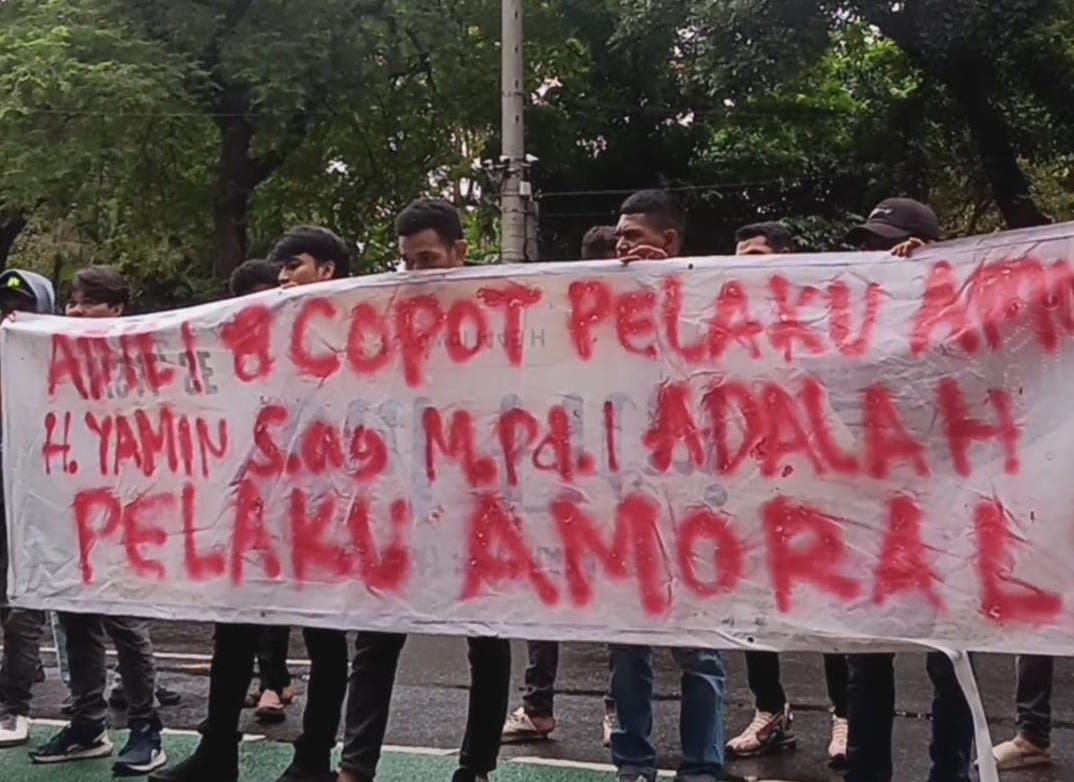 COPOT PELAKU
H. YAMIN S.ag M.Pd.I ADALAH
PELAKU AMORAL